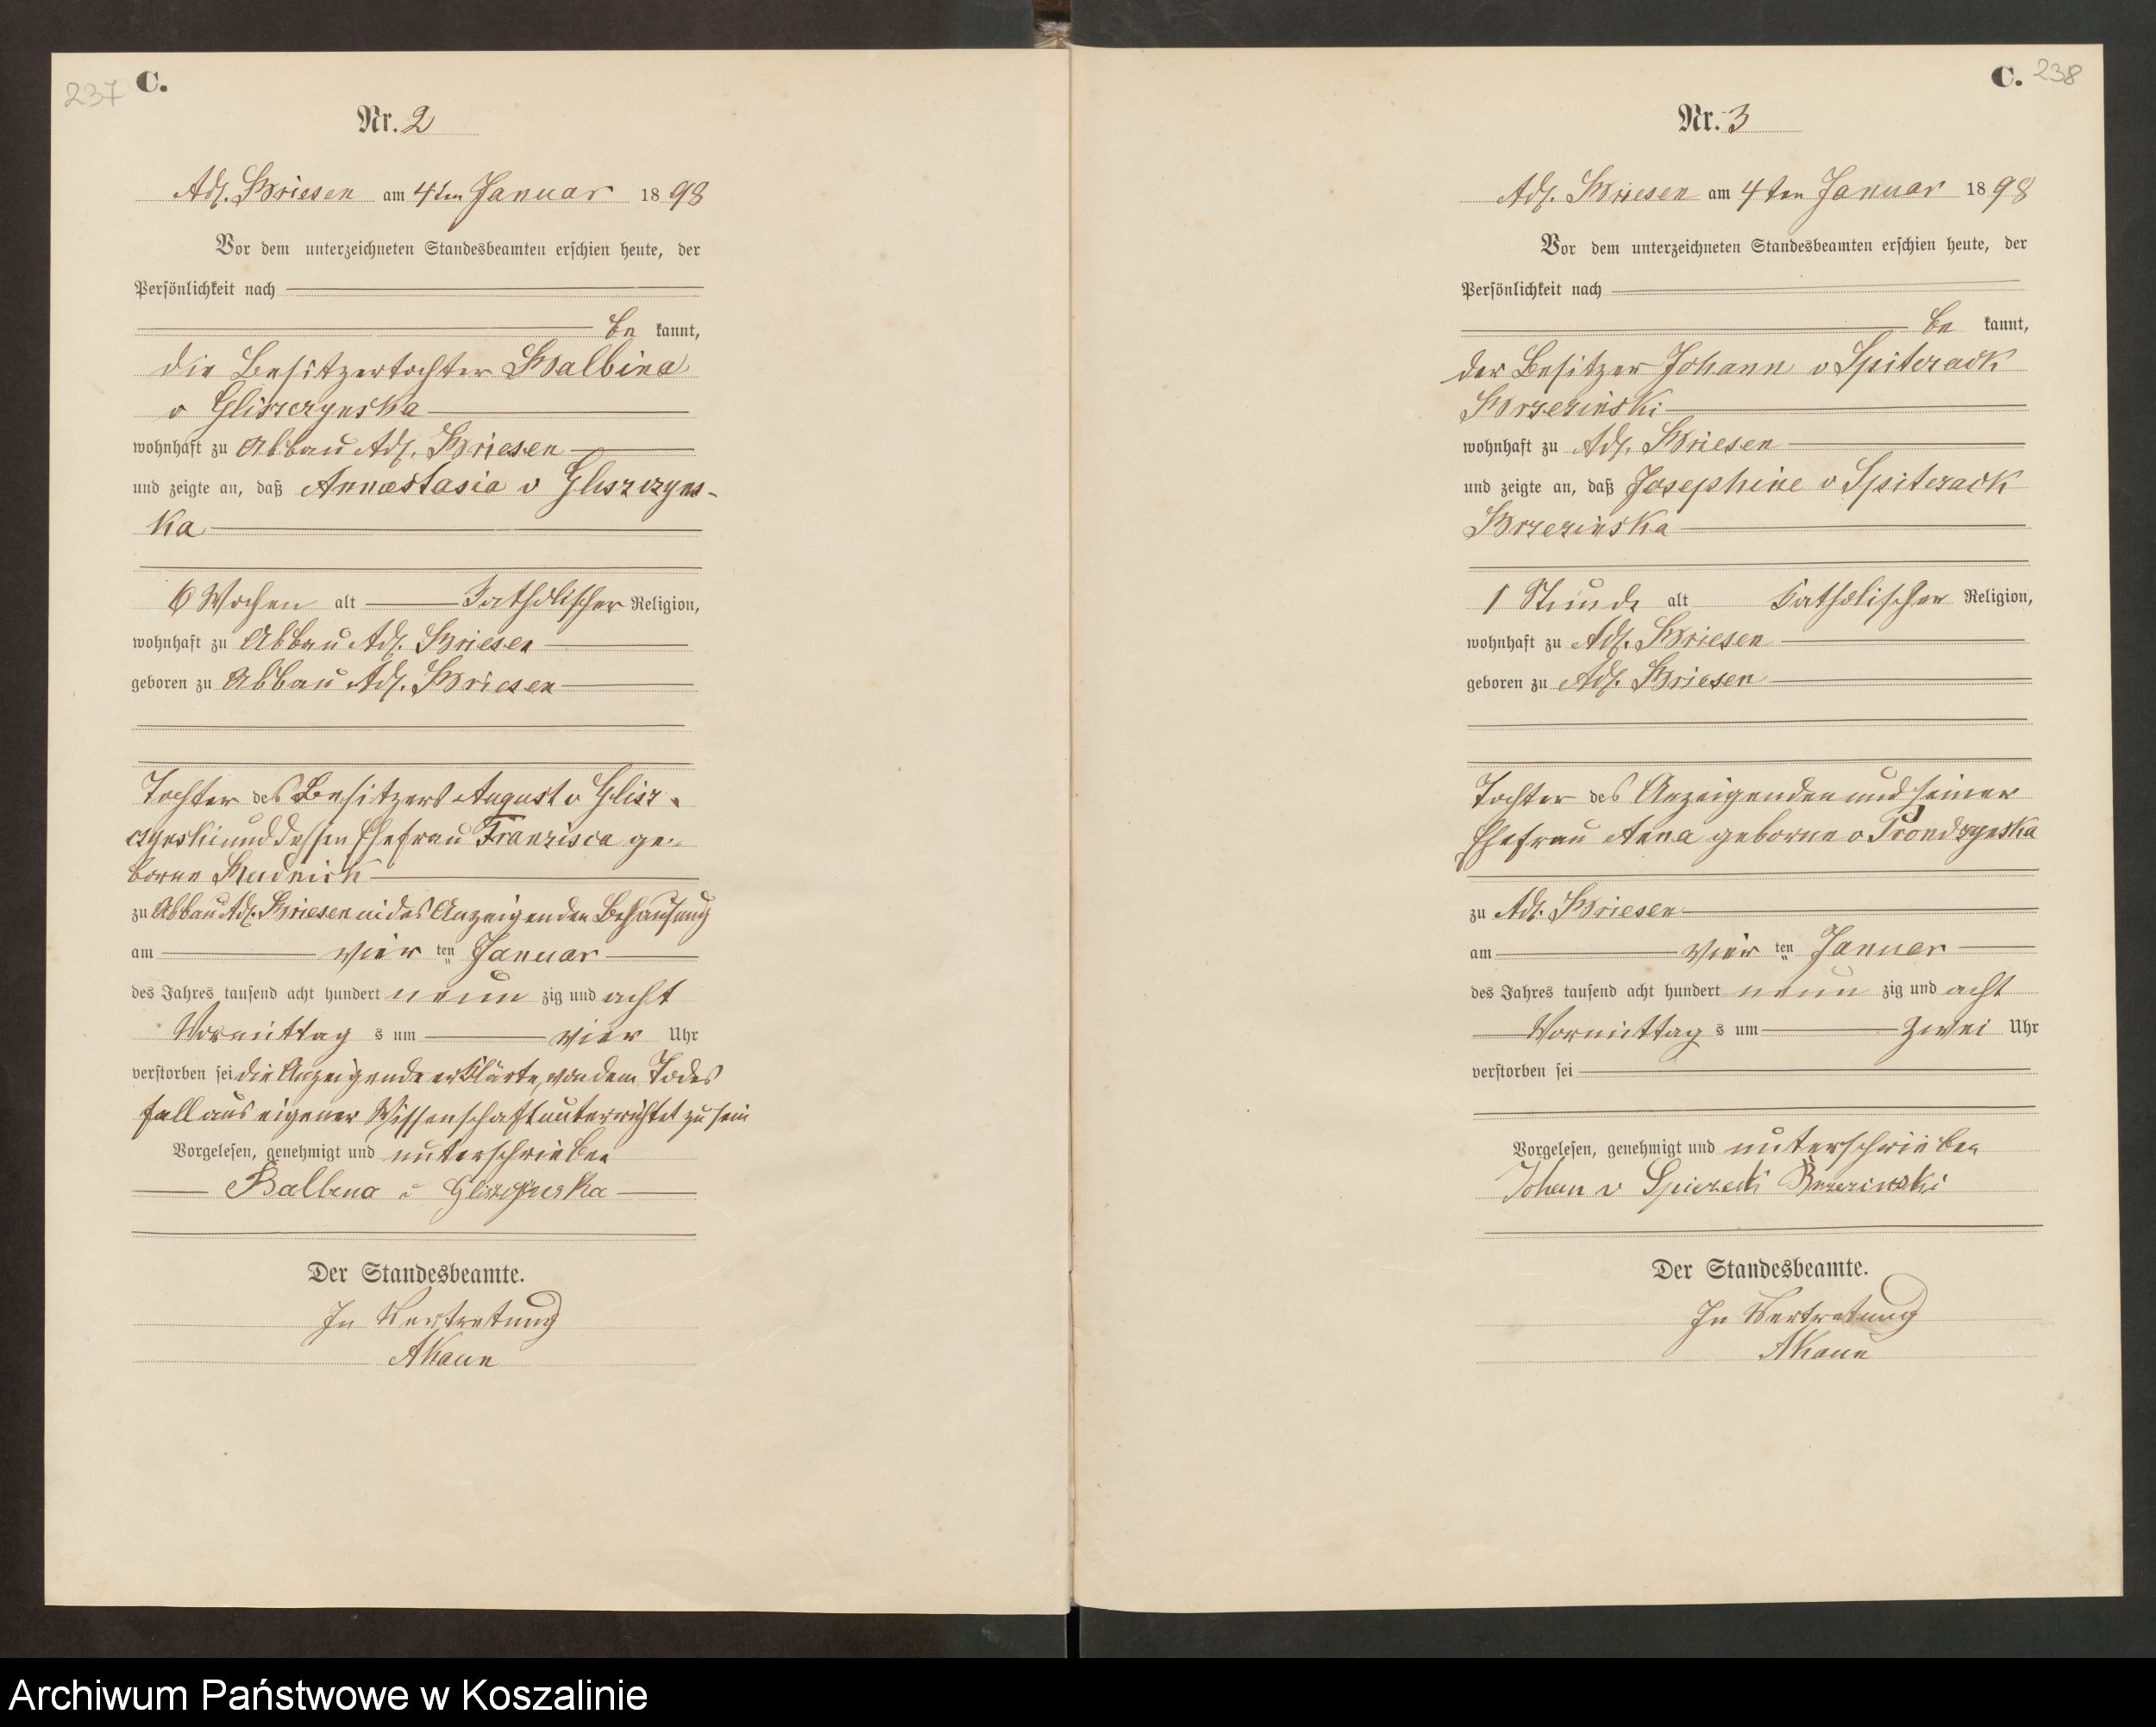 237
C.
Nr. 2
Adl. Briesen am 4ten Januar 1898
Vor dem unterzeichneten Standesbeamten erschien heute, der
Persönlichkeit nach
be kannt,
die Besitzertochter Balbina
v Gliszczynska
wohnhaft zu Abbau Adl. Briesen
und zeigte an, daß Annastasia v Gliszczyns-
ka
6 Wochen alt katholischer Religion,
wohnhaft zu Abbau Adl. Briesen
geboren zu Abbau Adl. Briesen
Tochter des Besitzers August v Glisz-
czynski und dessen Ehefrau Franzisca ge-
borne Rudnick
zu Abbau Adl. Briesen in des Anzeigenden Behausung
am vier ten Januar
des Jahres tausend acht hundert neun zig und acht
Vormittag s um vier Uhr
verstorben sei die Anzeigende erklärte, von dem Todes
fall aus eigener Wissenschaft unterrichtet zu sein
Vorgelesen, genehmigt und unterschrieben
Balbina v Gliszczynska
Der Standesbeamte.
In Vertretung
C. 238
Nr. 3
Adl. Briesen am 4ten Januar 1898
Vor dem unterzeichneten Standesbeamten erschien heute, der
Persönlichkeit nach
be kannt,
der Besitzer Johann v Spiczack
Brzezinski
wohnhaft zu Adl. Briesen
und zeigte an, daß Josephine v Spiczack
Brzezinska
1 Stunde alt katholischer Religion,
wohnhaft zu Adl. Briesen
geboren zu Adl. Briesen
Tochter des Anzeigenden und seiner
Ehefrau Anna geborne v Prondzynska
zu Adl. Briesen
am vier ten Januar
des Jahres tausend acht hundert neun zig und acht
Vormittag s um zwei Uhr
verstorben sei
Vorgelesen, genehmigt und unterschrieben
Johan v Brzezinski
Der Standesbeamte.
In Vertretung
Archiwum Państwowe w Koszalinie